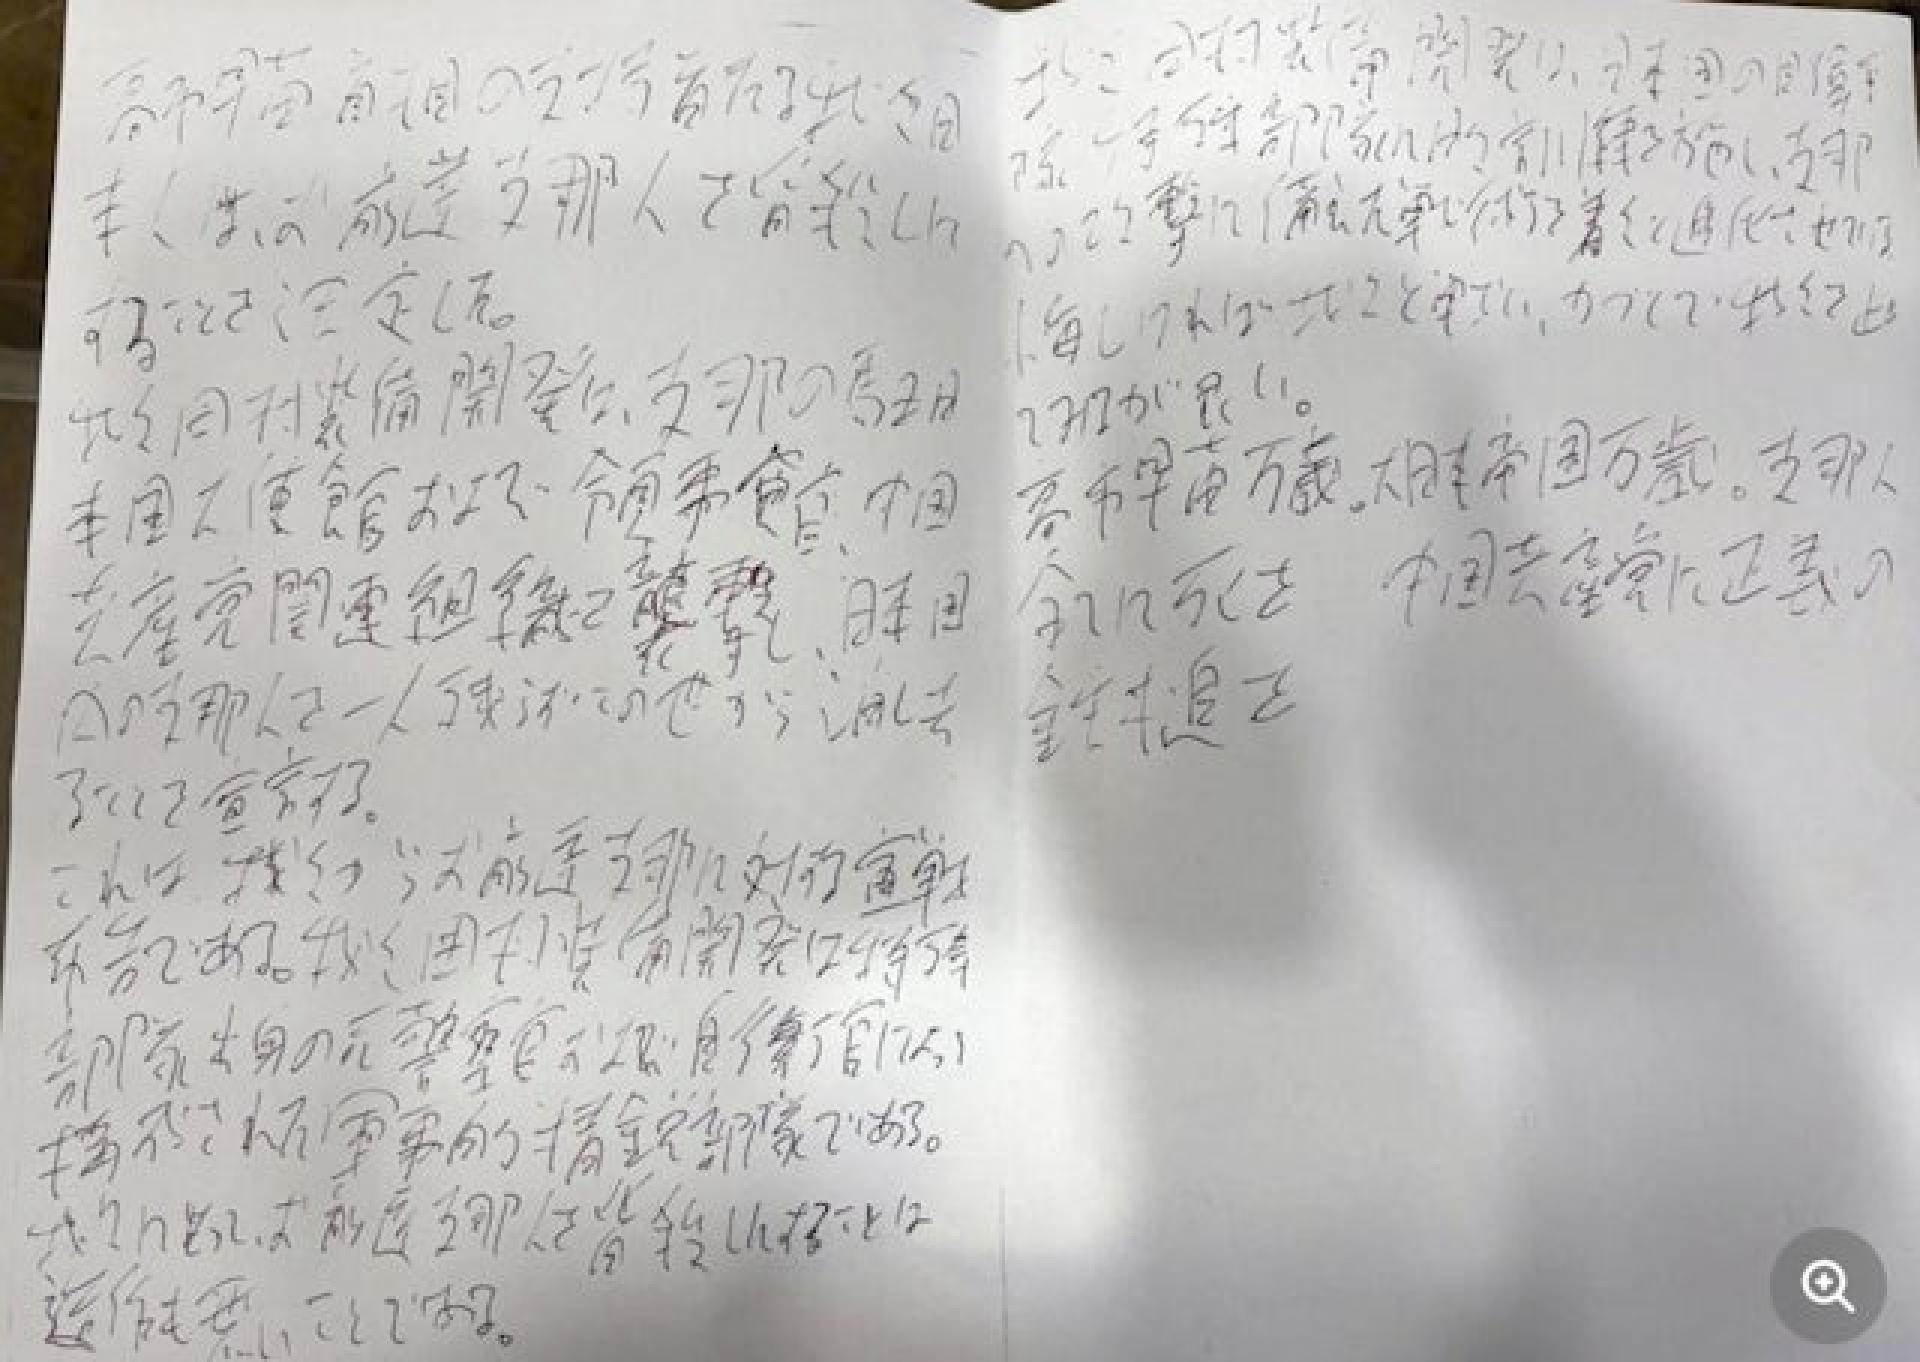 高市早苗首相の支持者たる我々日
本人は、お前達支那人を皆殺しに
することを決定した。
我々日村装備開発は、支那の駐日
本国大使館および領事館、中国
共産党関連組織を襲撃し、日本国
内の支那人を一人残らずこの世から消し去
ることを宣言する。
これは、我々からお前達支那に対する宣戦
布告である。我々日村装備開発は特殊
部隊出身の元警察官および自衛官によって
構成された軍事的精鋭部隊である。
我々にとって、お前達支那人を皆殺しにすることは
造作も無いことである。
我々日村装備開発は、日本国の自衛
隊特殊部隊に訓練を施し、支那
への攻撃に備え
悔しければ我々と戦い、かつて
みるが良い。
高市早苗万歳。大日本帝国万歳。支那人
全てに死を 中国共産党に正義の
鉄槌を